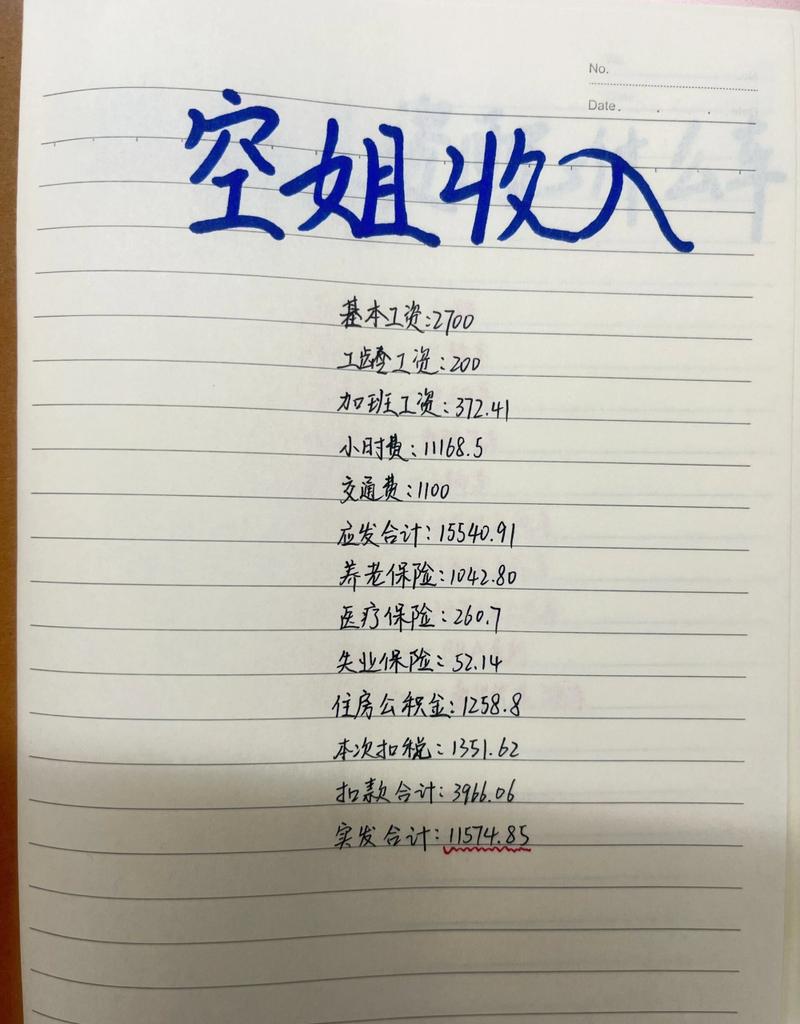 No.
Date.
空姐收入
基本工资:2700
工龄工资:200
加班工资:372.41
小时费:11168.5
交通费:1100
应发合计:15540.91
养老保险:1042.80
医疗保险:260.7
失业保险:52.14
住房公积金:1258.8
本次扣税:1351.62
扣款合计:3966.06
实发合计:11574.85